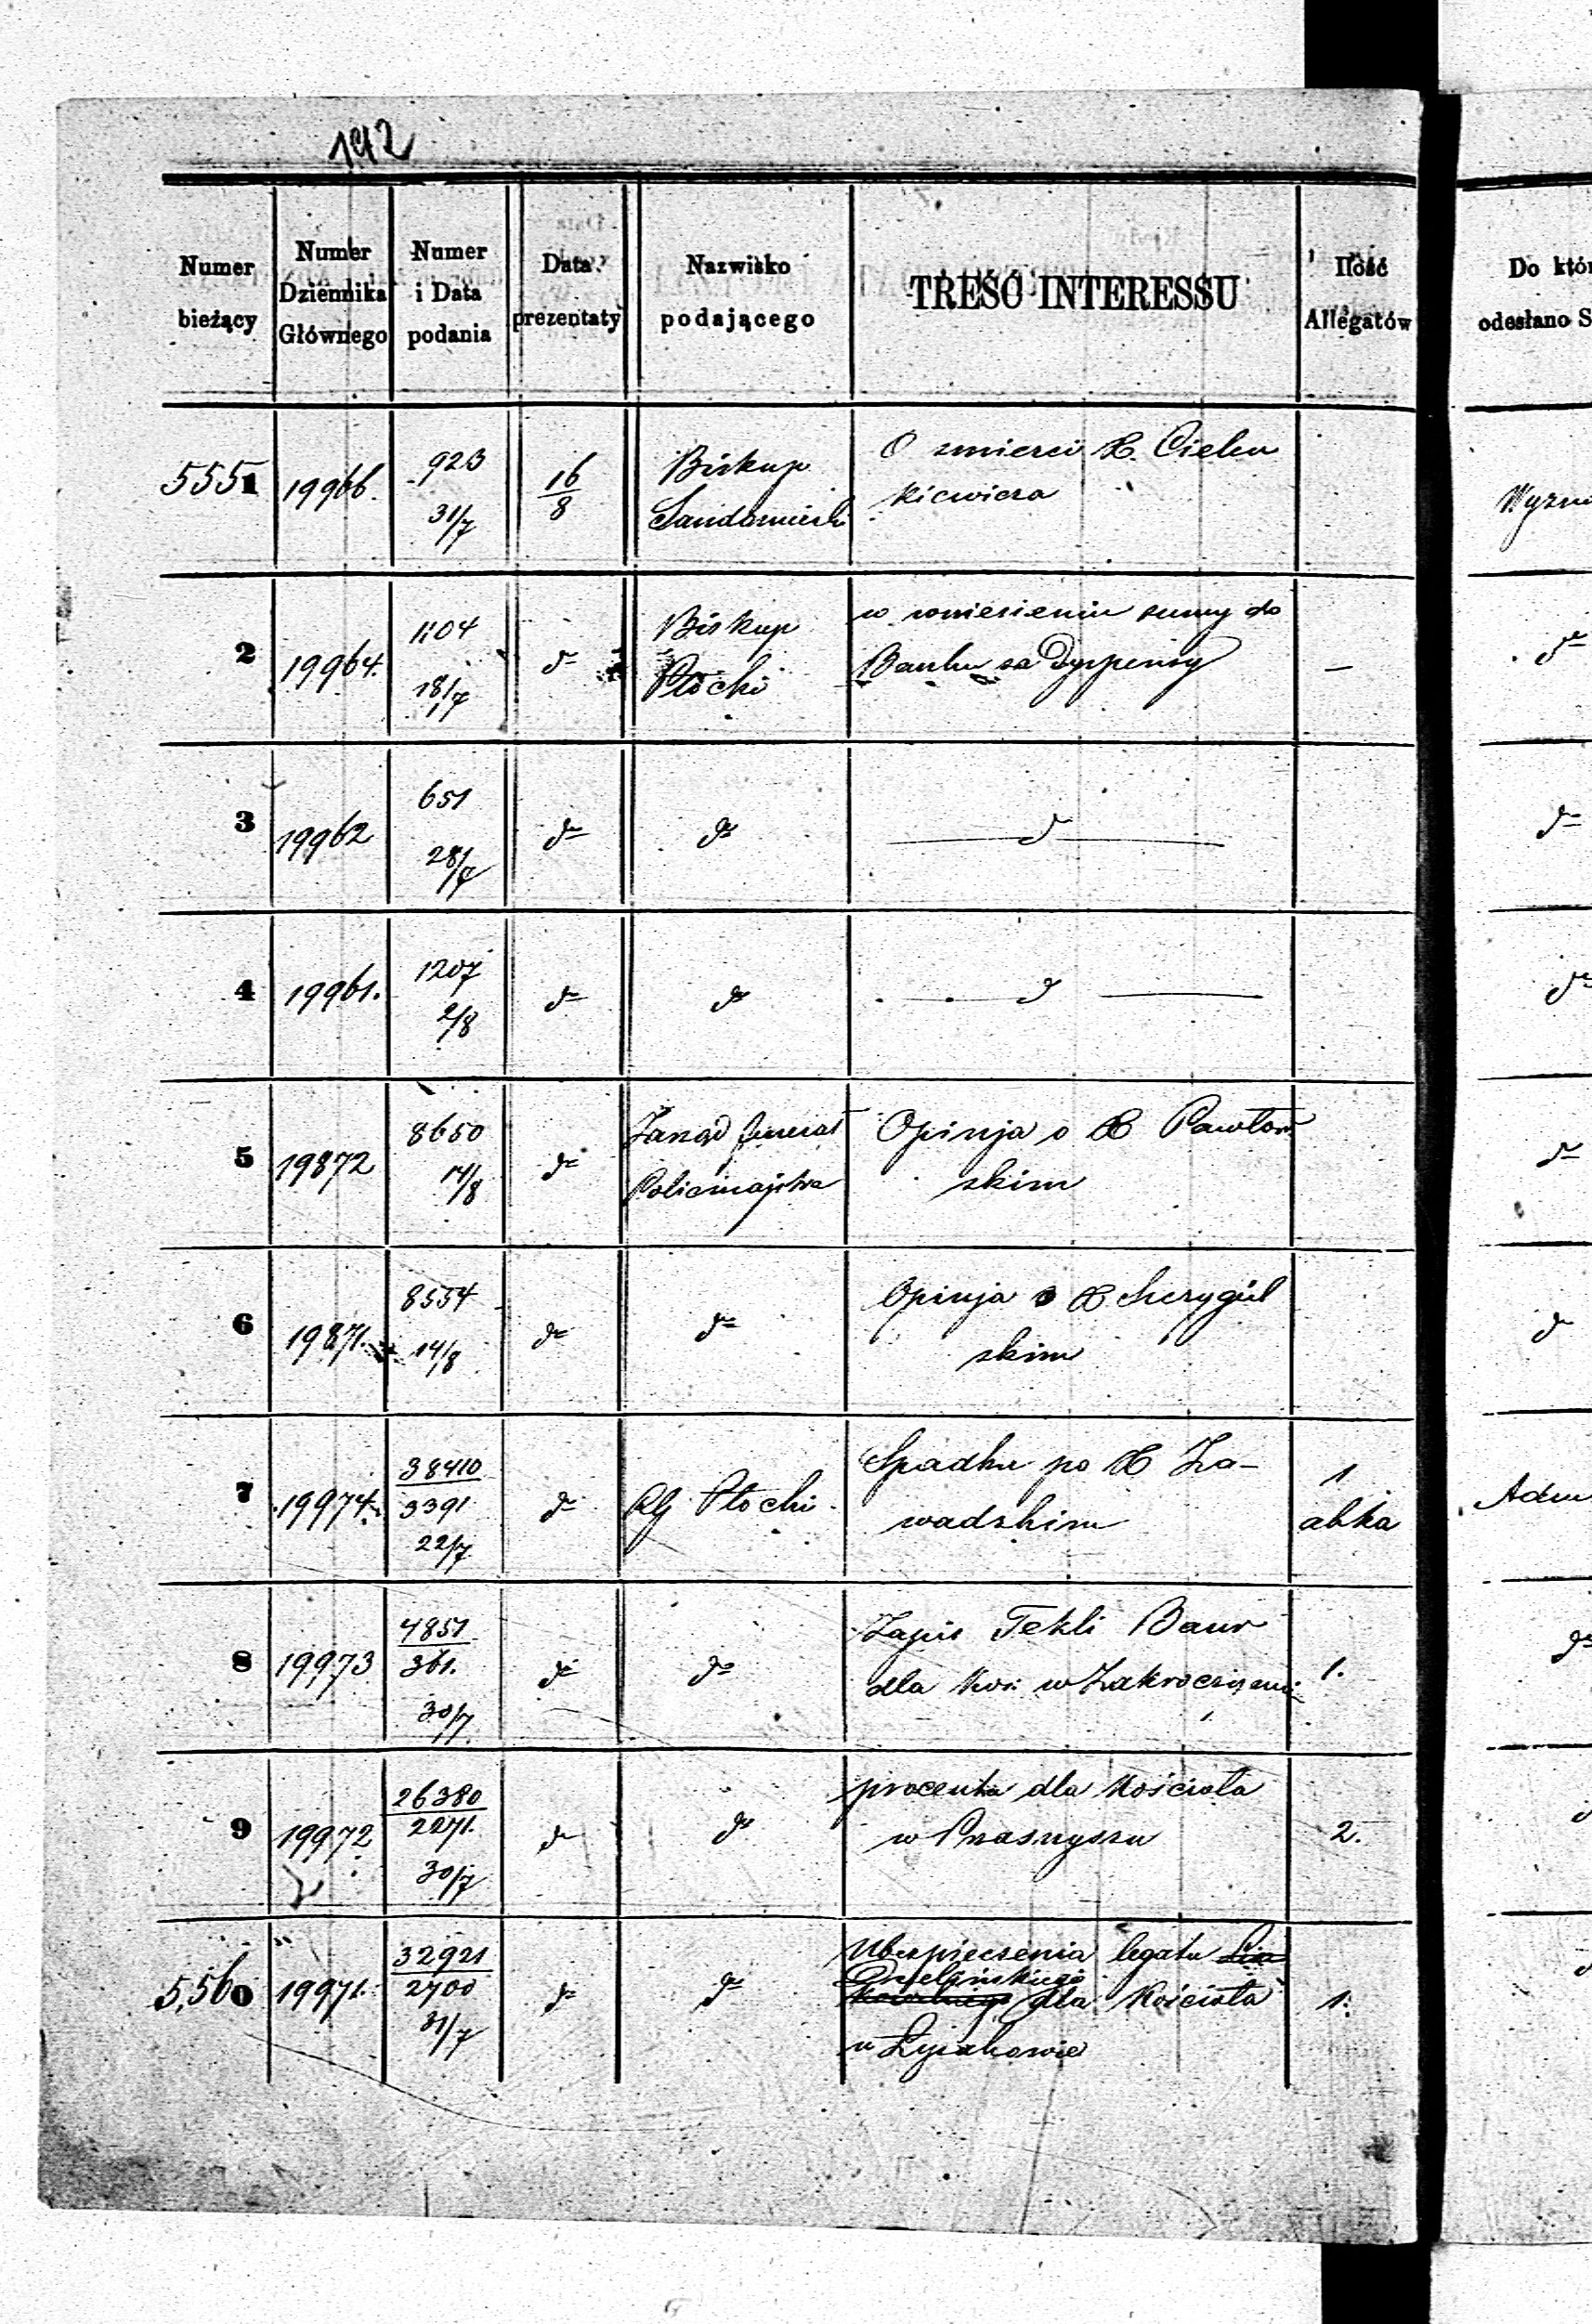 192
Numer bieżący
Numer Dziennika Głównego
Numer i Data podania
Data prezentaty
Nazwisko podającego
TREŚĆ INTERESSU
Ilość Allegatów
Do któr
odesłano S
5551 19966. 923 31/7 16/8 Biskup O śmierci X. Cielen
kiewicza
2 19964. 1104 18/7 do Biskup Płocki w wniesieniu sumy do
Banku za Dyspensy —
3 19962 651 28/7 do do — do —
4 19961. 1207 2/8 do do — d —
5 19872 8650 14/8 do Zarząd Policmajstra Opinja o X Pawłow
skim do
6 19871. 8554 14/8 do do Opinja o X
skim
7 19974 38410 3391 22/7 do RG Płocki Spadku po X Za-
wadzkim 1 abka
8 19973 4851 361. 30/7 do do Zapis Tekli Baur
dla Koś: w Zakroczymi 1.
9 19972 26380 2271. 30/7 do do procenta dla Kościoła
w Prasnyszu 2.
5,560 19971. 32921 2700 31/7 do do Ubezpieczenia legatu
dla Kościoła 1.